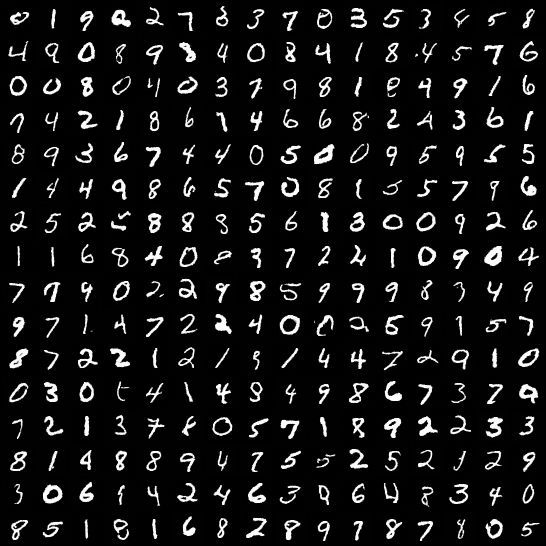 0 1 9 2 2 7 8 3 7 0 3 5 3 4 5 8
4 9 0 8 9 8 4 0 8 4 1 8 4 5 7 6
0 0 8 0 4 0 3 7 9 8 1 8 9 9 1 6
7 4 2 1 8 6 1 4 6 6 8 2 4 3 6 1
8 9 3 6 7 4 4 0 5 0 0 9 5 9 5 5
1 4 4 9 8 6 5 7 0 8 1 5 5 7 9 6
2 5 2 5 8 8 8 5 6 1 3 0 0 9 2 6
1 1 6 8 4 0 8 3 7 2 2 1 0 9 0 4
7 7 9 0 2 2 9 8 5 9 9 9 8 3 4 9
9 7 1 4 7 2 2 4 0 0 2 5 9 1 5 7
8 7 2 2 1 2 1 9 1 4 4 7 2 9 1 0
0 3 0 5 4 1 4 9 4 9 8 6 7 3 7 0
7 2 1 3 7 8 0 5 7 1 8 9 2 2 3 3
8 1 4 8 8 9 4 7 5 5 2 5 2 1 2 9
3 0 6 9 4 2 4 6 3 9 6 4 8 3 4 0
8 5 1 8 1 6 8 2 8 9 7 8 7 8 0 5